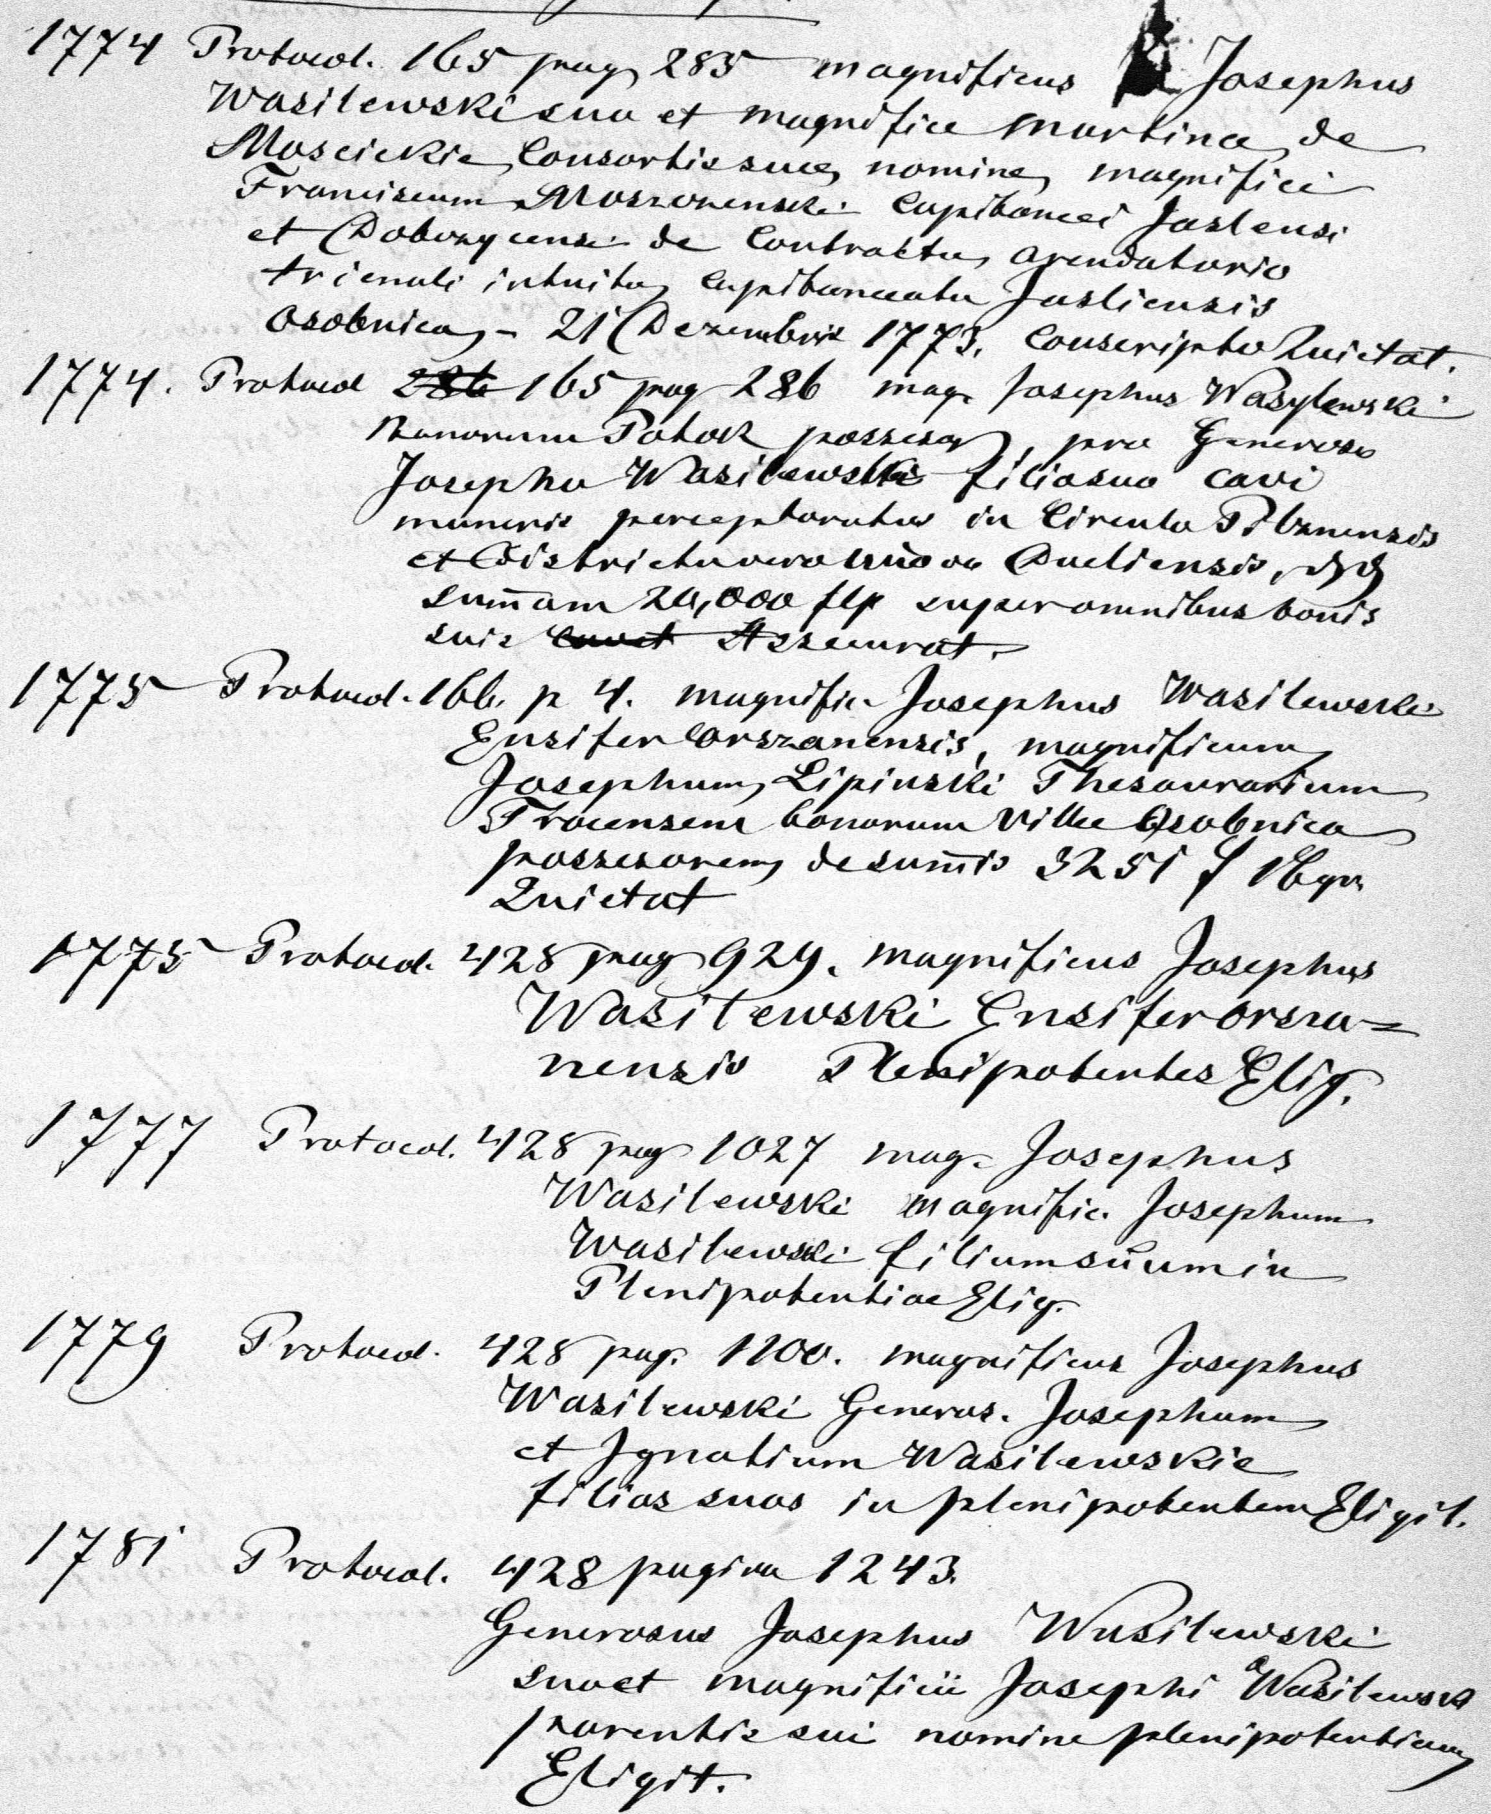 1774 Protocol. 165 pag 285 magnificus Josephus
Wasilewski suo et magnifice Martina de
Moscickie Consortis sue nomine magnifici
Franciscum Moszczenski Capitanei Jaslensi
et Dobczycensi de Contraktu arendatorio
trienali intuitu Capitaneatu Jasliensis
Osobnica - 21 Dezembris 1773. Conscripto Quietat.
1774. Protocol 165 pag 286 mag. Josephus Wasylewski
Bonorum Potok possessor, pro Generoso
Josepho Wasilewski filio suo
muneris perceptoratus in Circulo Pilznensis
et Districtu vero Ducliensis,
sum̄am 20,000 flp super omnibus bonis
suis Assecurat.
1775 Protocol. 166. p 4. magnific Josephus Wasilewski
Ensifer Orszanensis, magnificum
Josephum Lipinski Thesaurarium
Trocensem bonorum Ville Osobnica
possesorem de sum̄is 3251 f 16 gr
Quietat
1775 Protocol. 428 pag 929. magnificus Josephus
Wasilewski Ensifer Orsza=
nensis Plenipotentes Elig.
1777 Protocol. 428 pag 1027 mag. Josephus
Wasilewski magnific. Josephum
Wasilewski filium suum in
Plenipotentiae Elig.
1779 Protocol. 428 pag. 1100. magnificus Josephus
Wasilewski Generos. Josephum
et Ignatium Wasilewskie
filios suos in plenipotentem Eligit.
1781 Protocol. 428 pagina 1243.
Generosus Josephus Wasilewski
suo et magnificii Josephi Wasilewski
parentis sui nomine plenipotentiam
Eligit.